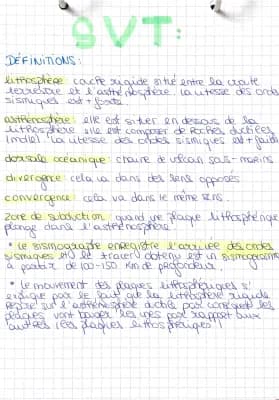 SVT:
DÉFINITIONS:
lithosphère: couche rigide situé entre la croute
terrestre et l'asthénosphère. la vitesse des ondes
sismiques est + forte.
asthénosphère: elle est situer en dessous de la
lithosphère elle est composer de Roches ductiles
(molle). la vitesse des ondes sismiques est + faible
dorsale océanique: chaine de volcan sous-marins
divergence: cela va dans des sens opposés
convergence: cela va dans le même sens.
zone de subduction: quand une plaque lithosphérique
plonge dans l'asthénosphère.
• le sismographe enregistre l'arrivée des ondes
sismiques et le tracer obtenu est un sismogramme
à partir de 100-150 km de profondeur.
• le mouvement des plaques lithosphériques s'
explique par le fait que la lithosphère rigide
repose sur l'asthénosphère ductile par conséquent les
plaques vont bouger les unes par rapport aux
autres (les plaques lithosphériques)